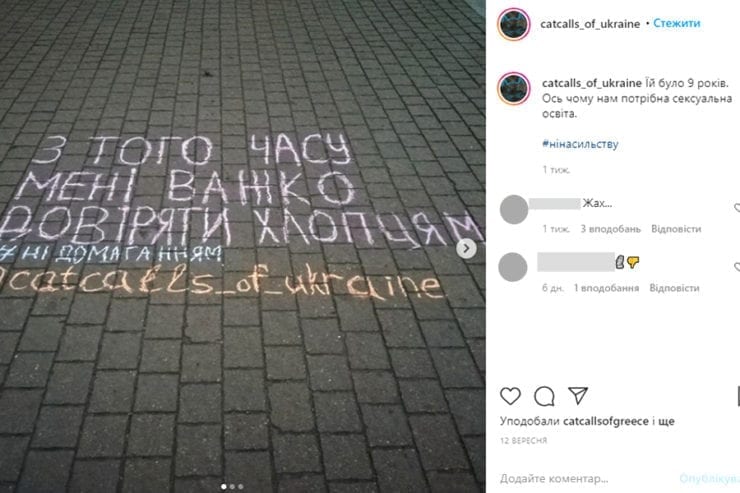 З ТОГО ЧАСУ
МЕНІ ВАЖКО
ДОВІРЯТИ ХЛОПЦЯМ
#НІДОМАГАННЯМ
@catcalls_of_ukraine
catcalls_of_ukraine • Стежити
catcalls_of_ukraine Їй було 9 років.
Ось чому нам потрібна сексуальна
освіта.
#нінасильству
1 тиж.
Жах...
1 тиж. 3 вподобань Відповісти
6 дн. 1 вподобання Відповісти
Уподобали catcallsofgreece і ще
12 ВЕРЕСНЯ
Додати коментар...
Опублікув